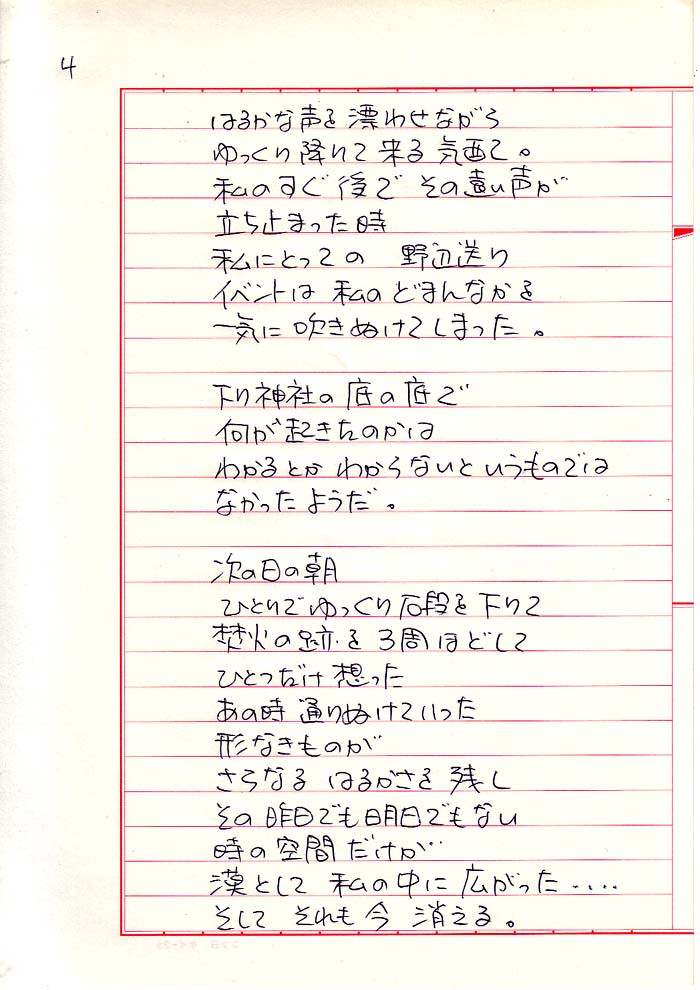 4
はるかな声を漂わせながら
ゆっくり降りて来る気配で。
私のすぐ後で その遠い声が
立ち止まった時
私にとっての 野辺送り
イベントは 私のどまんなかを
一気に吹きぬけてしまった。
下り神社の底の底で
何が起きたのかは
わかるとか わからないというものでは
なかったようだ。
次の日の朝
ひとりでゆっくり石段を下りて
焚火の跡を3周ほどして
ひとつだけ想った
あの時 通りぬけていった
形なきものが
さらなる はるかさを残し
その昨日でも明日でもない
時の空間だけが…
漠として 私の中に広がった‥‥
そして それも今 消える。